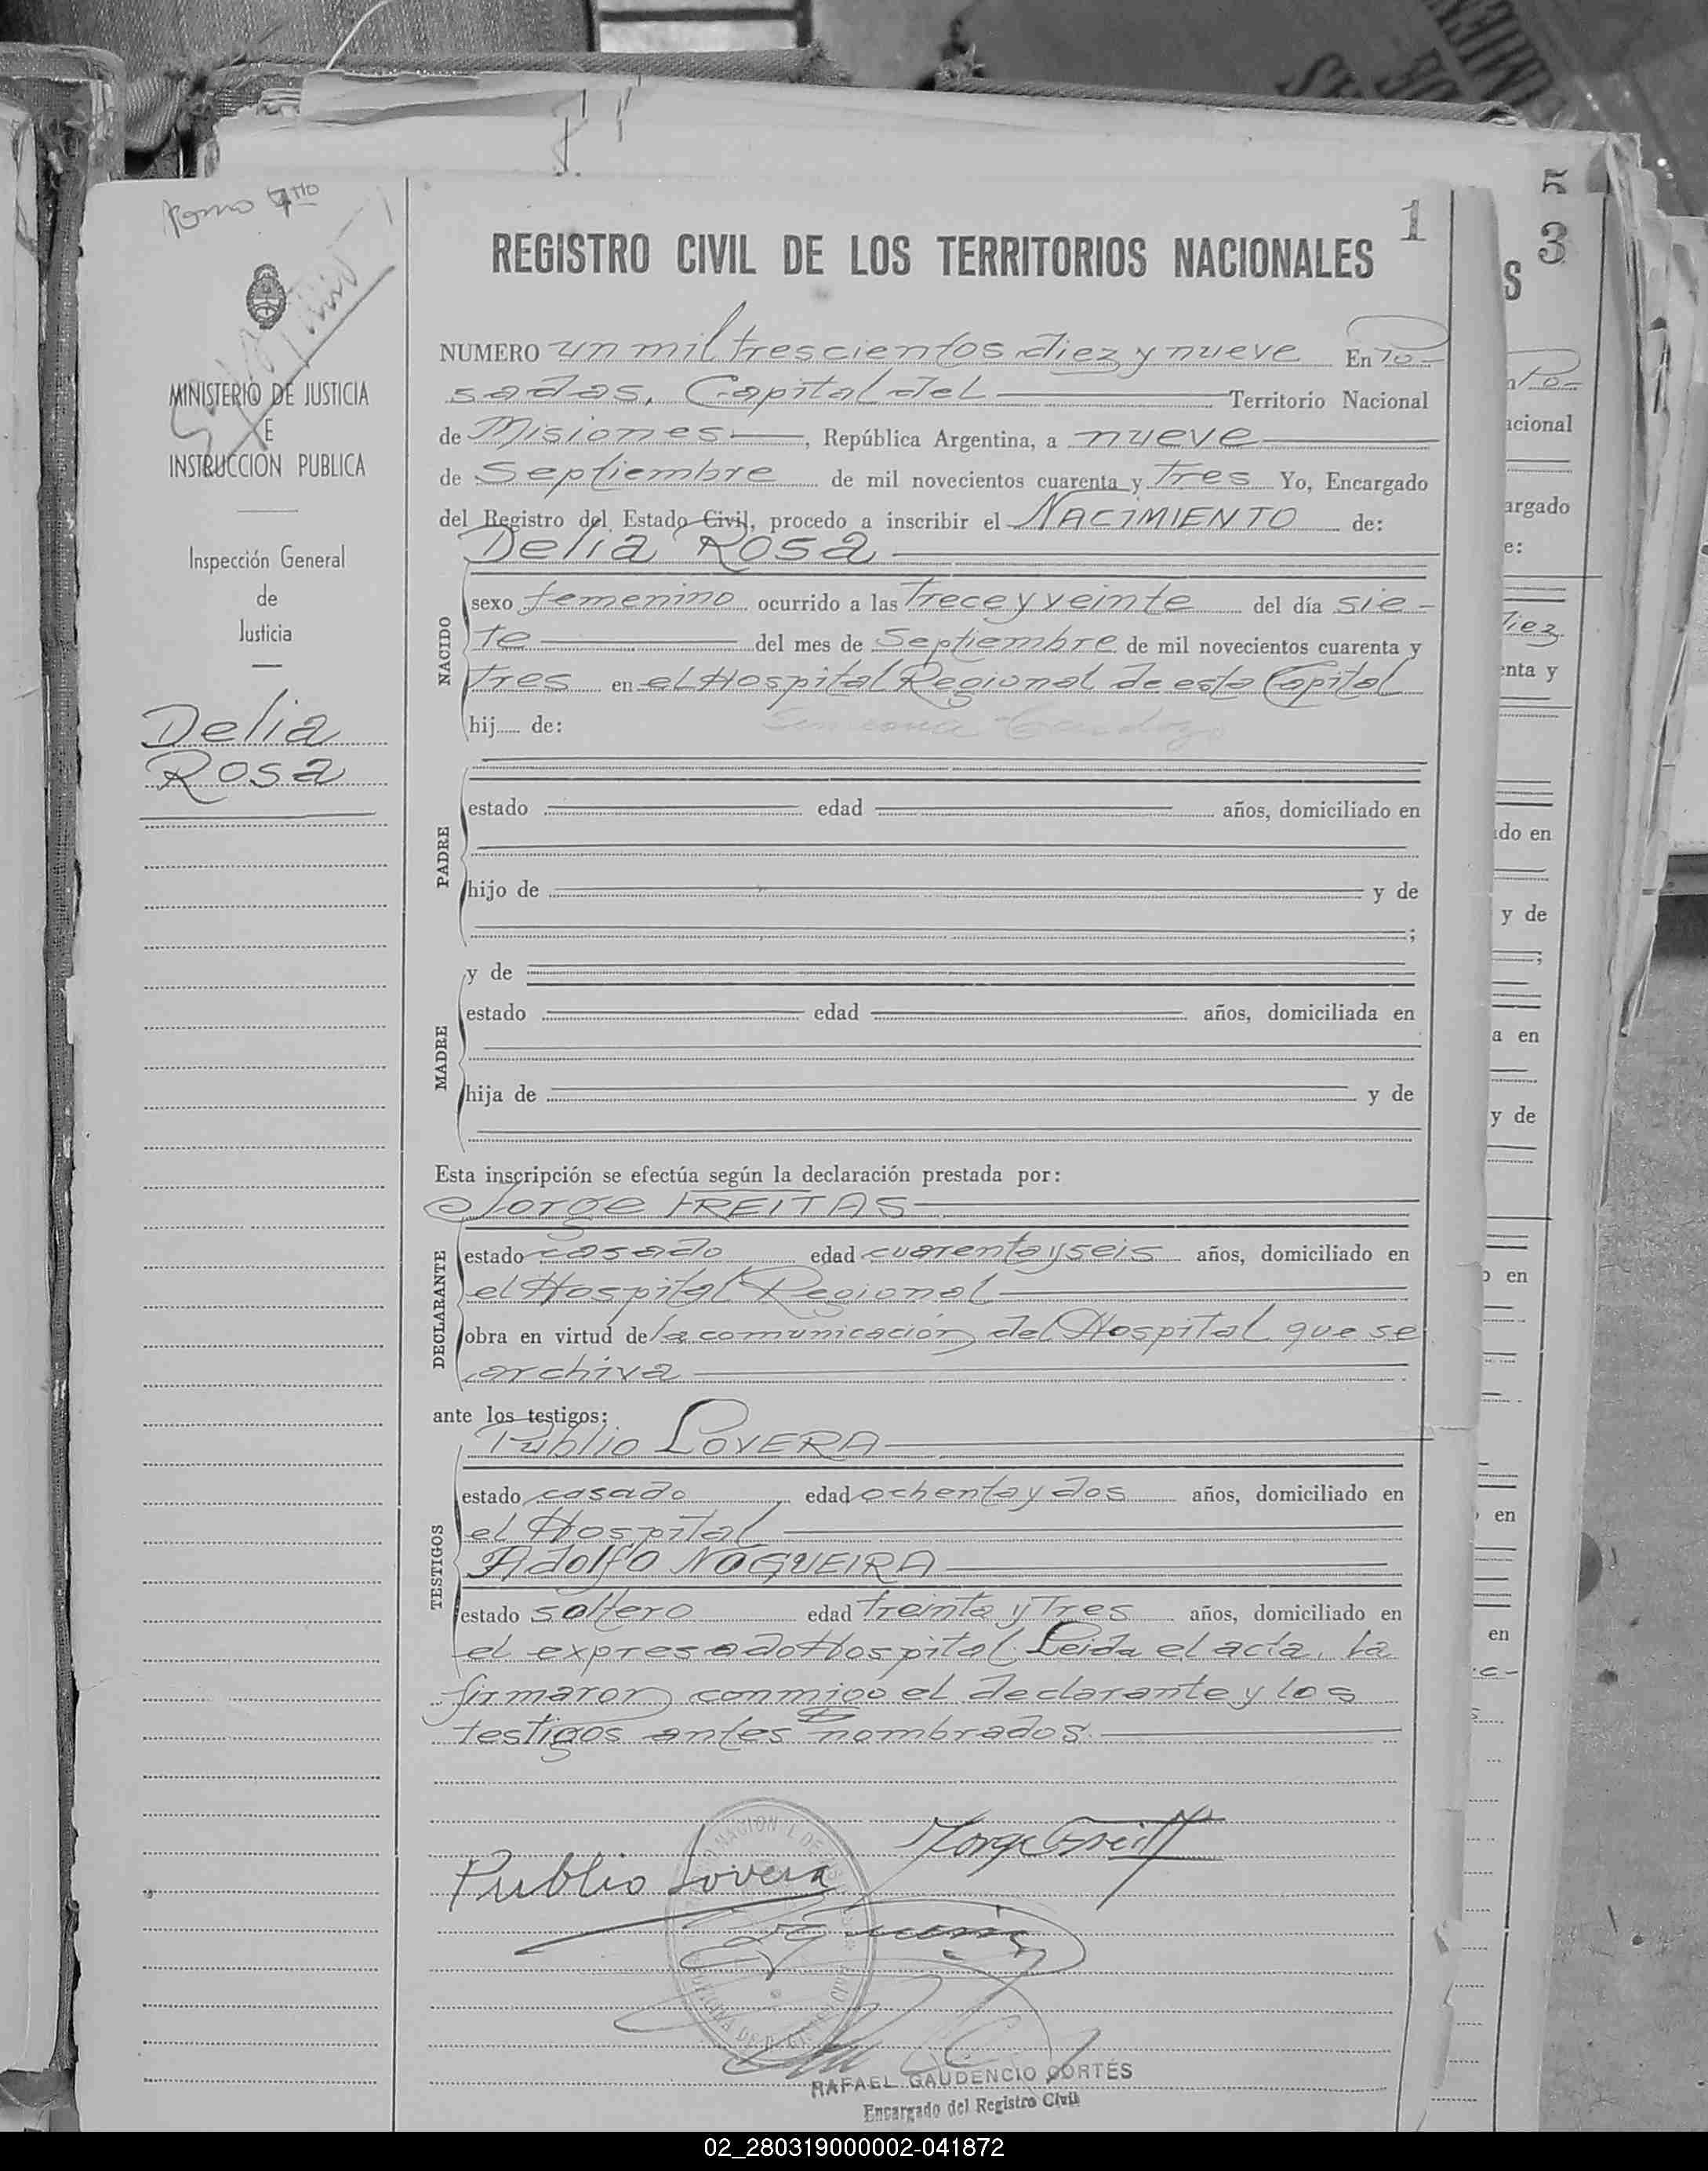 Tomo
1
5
3
REGISTRO CIVIL DE LOS TERRITORIOS NACIONALES
MINISTERIO DE JUSTICIA
E
INSTRUCCION PUBLICA
Inspección General
de
Justicia
Delia
Rosa
NUMERO un mil trescientos diez y nueve En Po-
sadas, Capital del Territorio Nacional
de Misiones, República Argentina, a nueve
de Septiembre de mil novecientos cuarenta y tres Yo, Encargado
del Registro del Estado Civil, procedo a inscribir el NACIMIENTO de:
Delia Rosa
NACIDO
sexo femenino ocurrido a las trece y veinte del día sie-
te del mes de Septiembre de mil novecientos cuarenta y
tres en el Hospital Regional de esta Capital
hij de:
PADRE
estado edad años, domiciliado en
hijo de y de
;
MADRE
y de
estado edad años, domiciliada en
hija de y de
Esta inscripción se efectúa según la declaración prestada por:
Jorge FREITAS
DECLARANTE
estado casado edad cuarenta y seis años, domiciliado en
el Hospital Regional
obra en virtud de la comunicación del Hospital que se
archiva
ante los testigos:
Publio LOVERA
TESTIGOS
estado casado edad ochenta y dos años, domiciliado en
el Hospital
Adolfo NOGUEIRA
estado soltero edad treinta y tres años, domiciliado en
el expresado Hospital. Leida el acta, la
firmaron conmigo el declarante y los
testigos antes nombrados.
Publio Lovera
RAFAEL GAUDENCIO CORTÉS
Encargado del Registro Civil
02_280319000002-041872